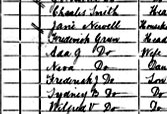 Charles Smith Hea
Jane Newell House
Frederick Green Head
Ada J Do Wife
Nora Do Dau
Frederick J Do Son
Sydney Do Do
Wilfred V Do Do